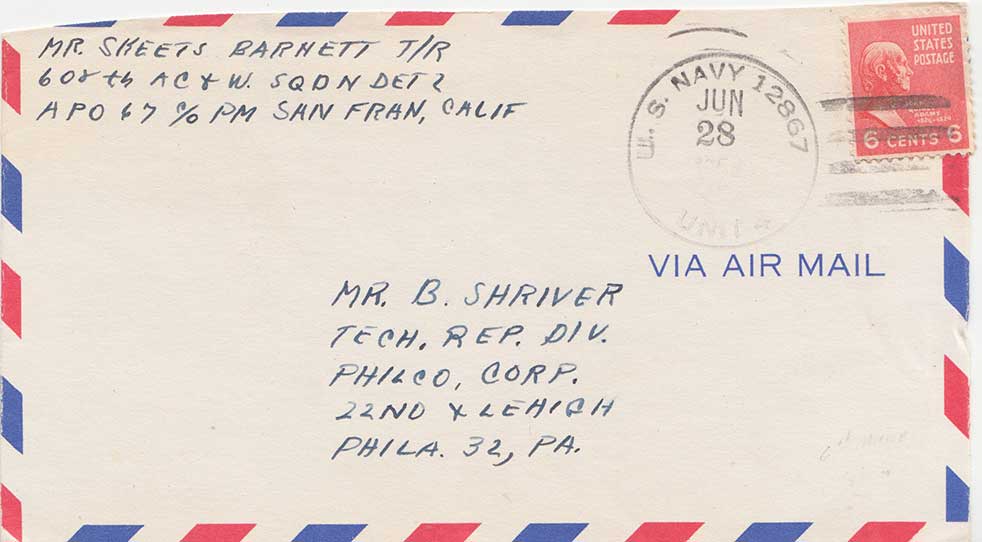 MR. SKEETS BARNETT T/R
608th AC & W. SQDN DET 2
APO 67 c/o PM SAN FRAN, CALIF
U. S. NAVY 12867
JUN
28
UNIT
UNITED
STATES
POSTAGE
ADAMS
6 CENTS 6
VIA AIR MAIL
MR. B. SHRIVER
TECH. REP. DIV.
PHILCO, CORP.
22ND & LEHIGH
PHILA. 32, PA.